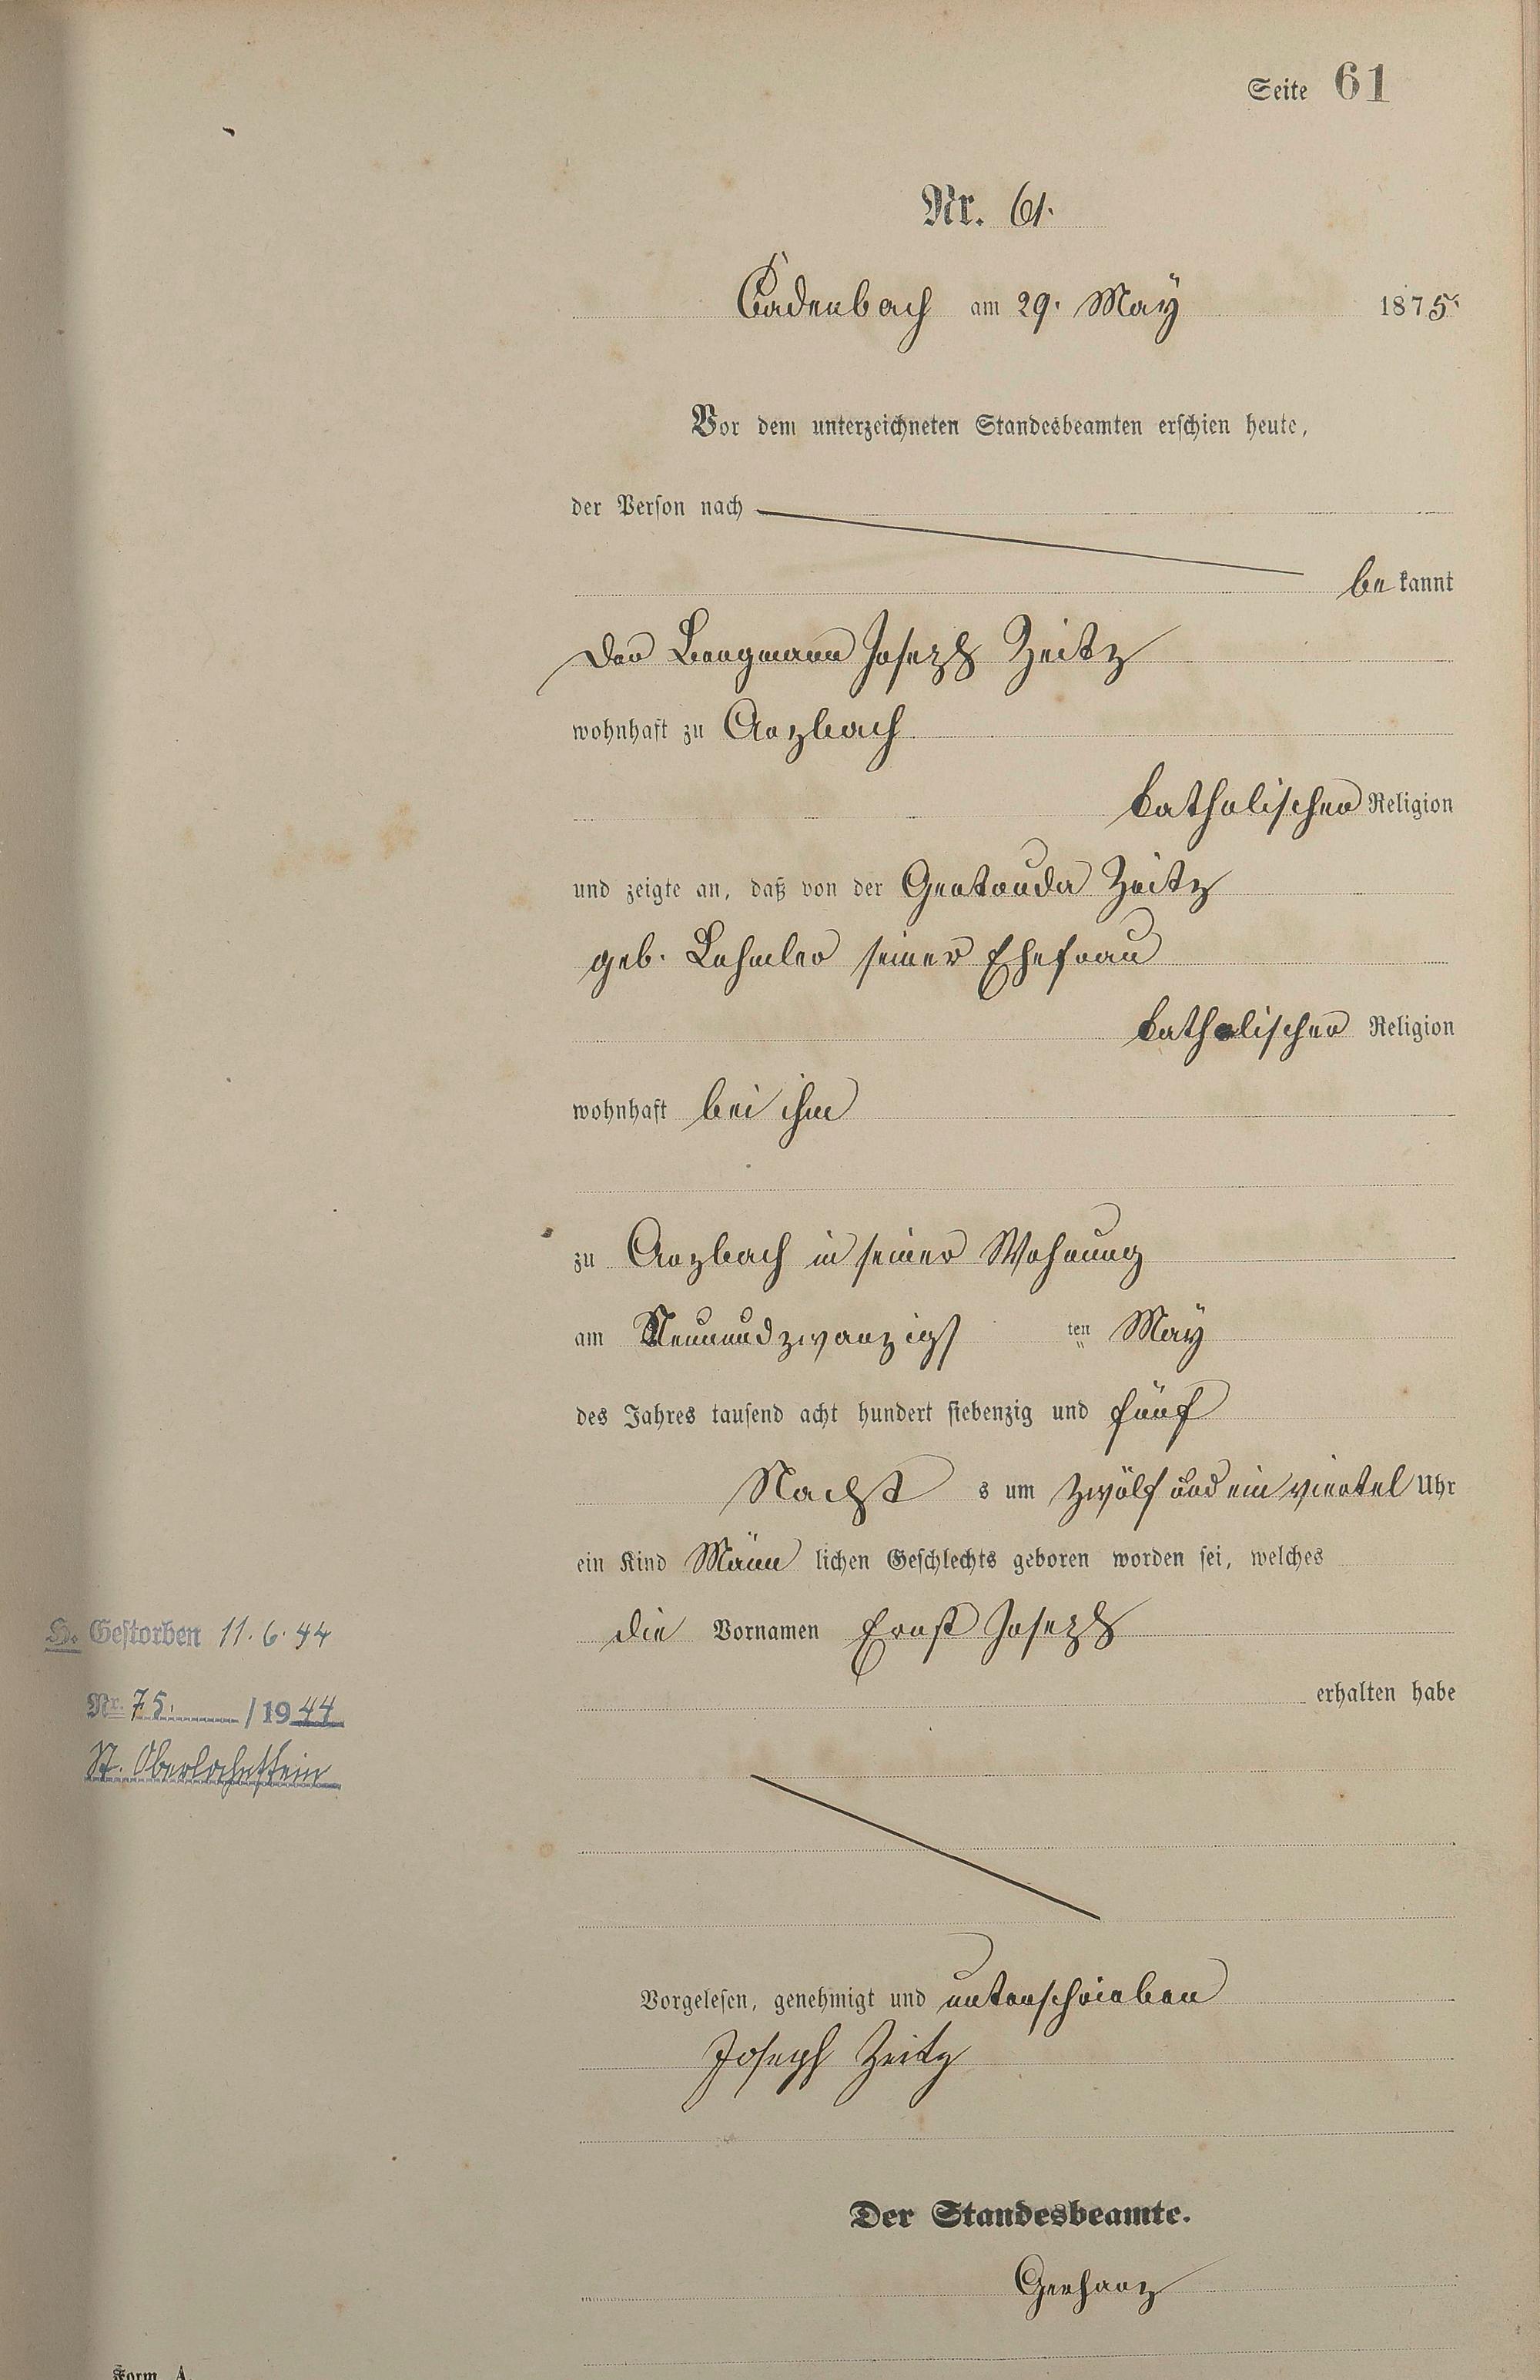 Seite 61
Nr. 61.
Cadenbach am 29. May 1875.
Vor dem unterzeichneten Standesbeamten erschien heute,
der Person nach
bekannt
Der Bergmann Joseph Zeitz
wohnhaft zu Arzbach
katholischer Religion
und zeigte an, daß von der Gertrude Zeitz
geb. Lehmler seiner Ehefrau
katholischer Religion
wohnhaft bei ihm
zu Arzbach in seiner Wohnung
am Neunundzwanzigs ten May
des Jahres tausend acht hundert siebenzig und fünf
Nacht s um zwölf und ein viertel Uhr
ein Kind Männlichen Geschlechts geboren worden sei, welches
die Vornamen Ernst Joseph
erhalten habe
H. Gestorben 11.6.44
Nr. 75. /1944
St. Oberlahnstein
Vorgelesen, genehmigt und unterschrieben
Joseph Zeitz
Der Standesbeamte.
Gerharz
Form. A.